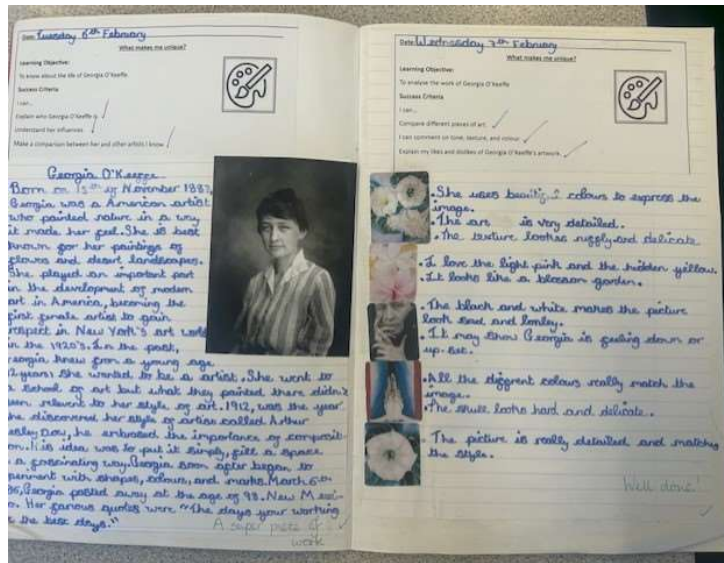 Date: Tuesday 6th February
What makes me unique?
Learning Objective:
To know about the life of Georgia O'Keeffe
Success Criteria
I can...
Explain who Georgia O'Keeffe is
Understand her influences
Make a comparison between her and other artists I know
Georgia O'Keeffe
Born on 15th of November 1887,
Georgia was a American artist
who painted nature in a way
it made her feel. She is best
known for her paintings of
flowers and desert landscapes.
She played an important part
in the development of modern
art in America, becoming the
first female artist to gain
respect in New York's art world
in the 1920's. In the past,
Georgia knew from a young age
years) she wanted to be a artist. She went to
a school of art but what they painted there didn't
seem relevent to her style of art. 1912, was the year
she discovered her style of artist called Arthur
Dow, he embraced the importance of composit-
ion. His idea was to put it simply, fill a space
in a fascinating way. Georgia soon after began to
experiment with shapes, colours, and marks. March 6th
86, Georgia passed away at the age of 98. New Mexic-
o. Her famous quotes were "The days your working
the best days."
A super piece of
work
Date: Wednesday 7th February
What makes me unique?
Learning Objective:
To analyse the work of Georgia O'Keeffe
Success Criteria
I can...
Compare different pieces of art
I can comment on tone, texture, and colour.
Explain my likes and dislikes of Georgia O'Keeffe's artwork.
• She uses beautiful colours to express the
image.
• The art is very detailed.
• The texture lookes and delicate
• I love the light pink and the hidden yellow.
• It looks like a blossom garden.
• The black and white makes the picture
look sad and lonley.
• It may show Georgia is feeling down or
up-set.
• All the different colours really match the
image.
• The skull looks hard and delicate.
• The picture is really detailed and matches
the style.
Well done!